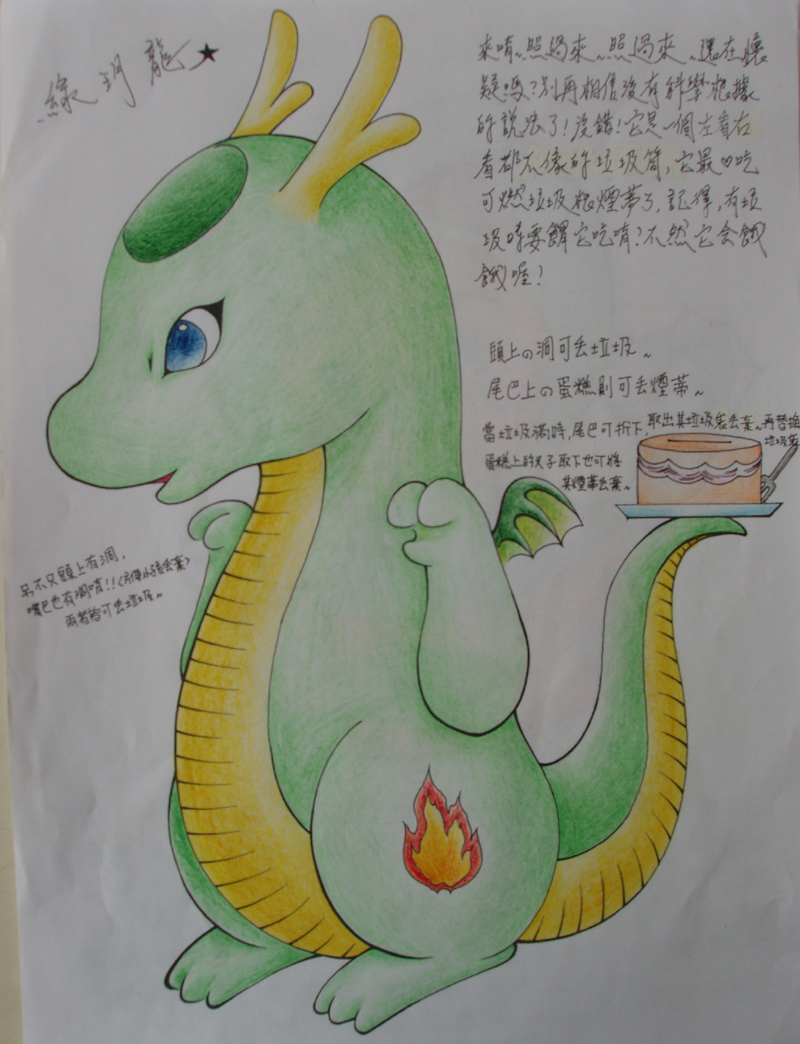 綠玥龍★
來唷~照過來~照過來~還在懷
疑嗎?別再相信沒有科學根據
的說法了!沒錯!它是一個左看右
看都不像的垃圾筒,它最♡吃
可燃垃圾根煙蒂了,記得,有垃
圾時要餵它吃唷?不然它会餓
餓喔!
頭上の洞可丟垃圾~
尾巴上の蛋糕則可丟煙蒂~
當垃圾滿時,尾巴可折下,取出其垃圾袋丟棄~再替換
垃圾袋
蛋糕上的叉子取下也可將
其煙蒂丟棄~
另不只頭上有洞,
嘴巴也有洞唷!!(方便小孩丟棄)
兩者皆可丟垃圾~